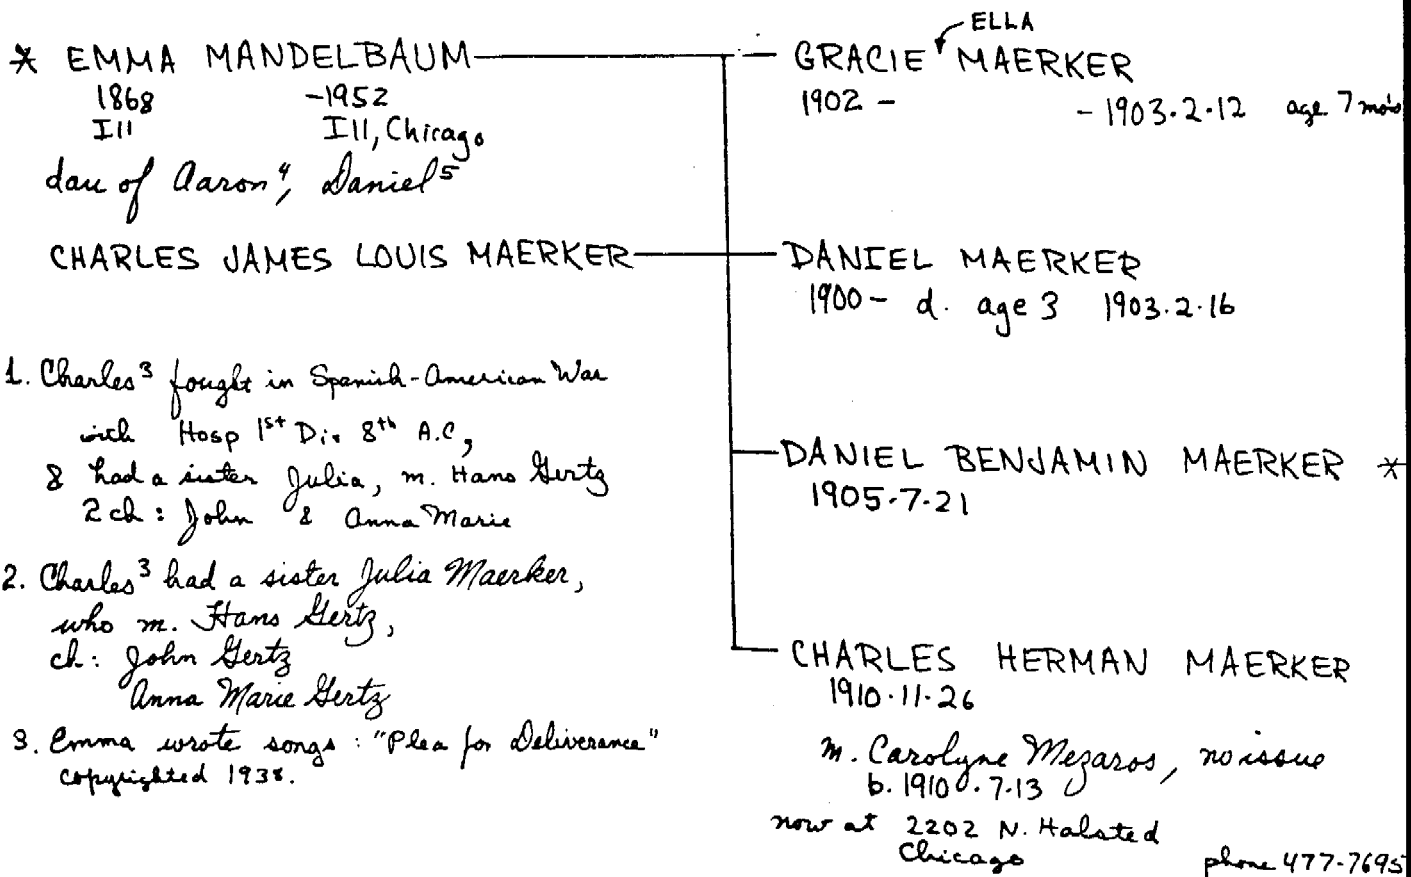 * EMMA MANDELBAUM
1868 -1952
Ill Ill, Chicago
dau of Aaron⁴, Daniel⁵
CHARLES JAMES LOUIS MAERKER
1. Charles³ fought in Spanish-American War
with Hosp 1st Div 8th A.C,
& had a sister Julia, m. Hans Gertz
2 ch: John & Anna Marie
2. Charles³ had a sister Julia Maerker,
who m. Hans Gertz,
ch: John Gertz
Anna Marie Gertz
3. Emma wrote songs: "Plea for Deliverance"
copyrighted 1938.
ELLA
GRACIE MAERKER
1902 - - 1903.2.12 age 7 mos
DANIEL MAERKER
1900 - d. age 3 1903.2.16
DANIEL BENJAMIN MAERKER *
1905.7.21
CHARLES HERMAN MAERKER
1910.11.26
m. Carolyne Mezaros, no issue
b. 1910.7.13
now at 2202 N. Halsted
Chicago phone 477-7695